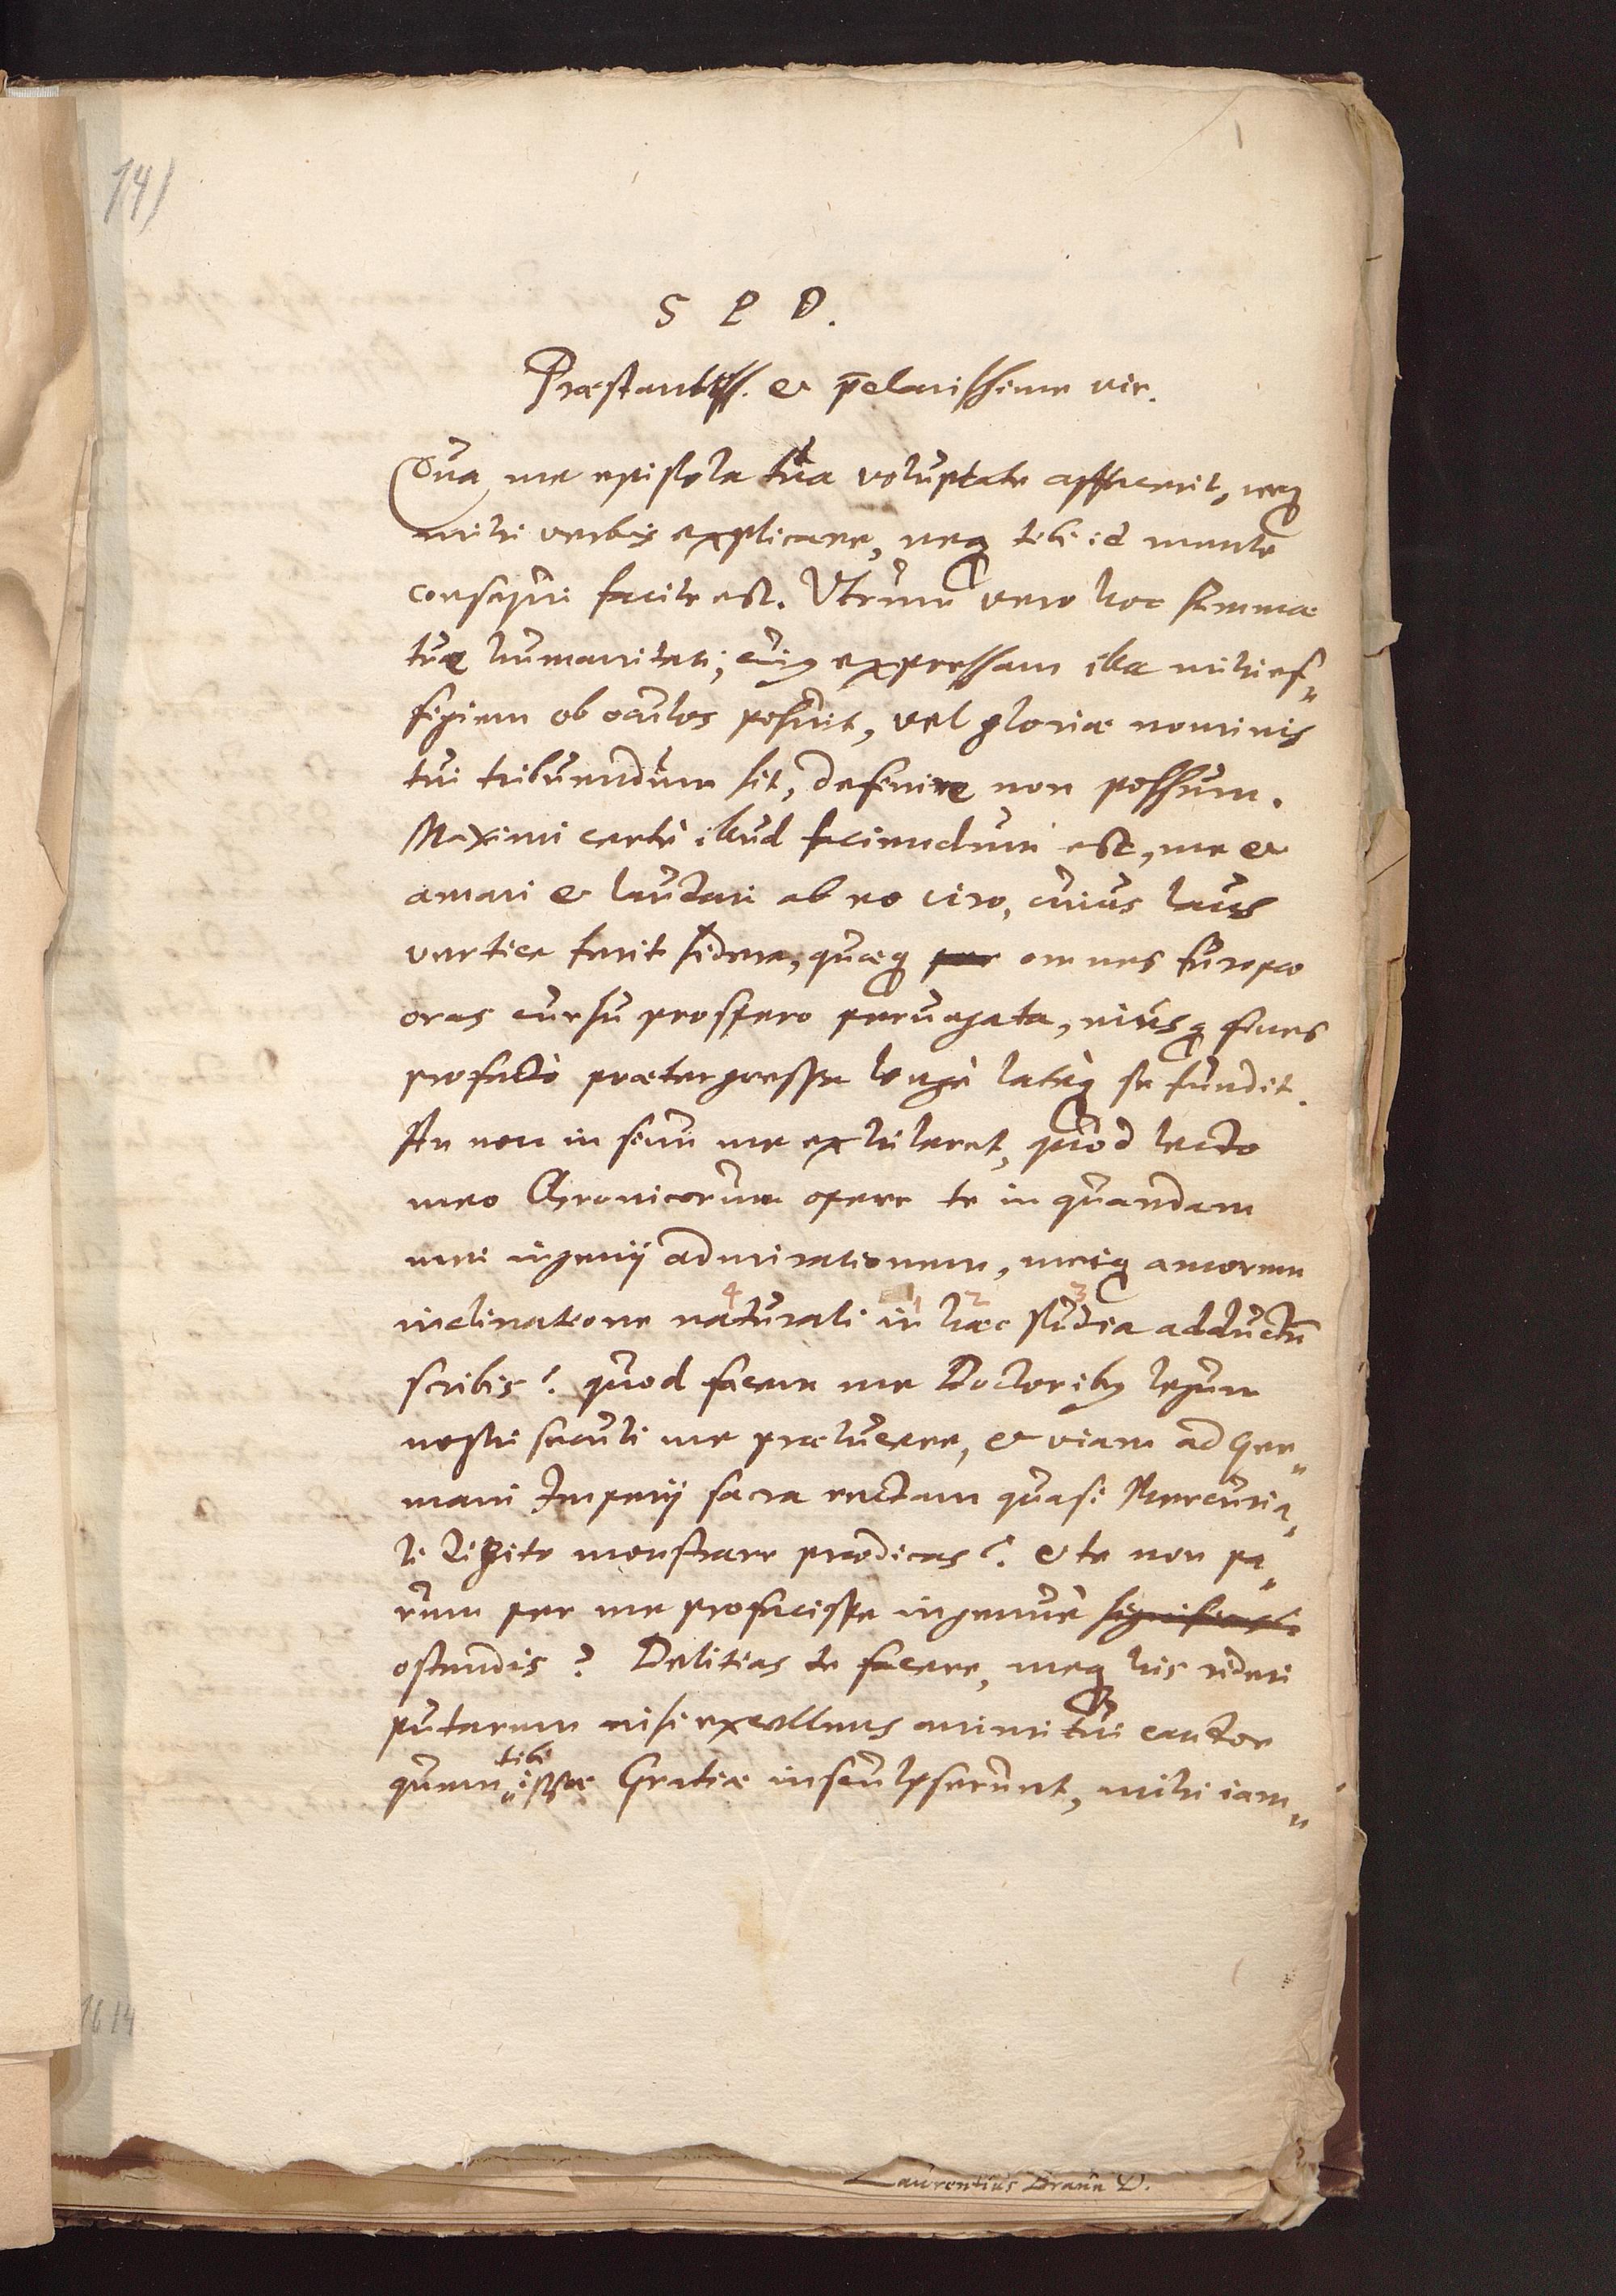 141
S P D.
Præstantiss. & p̄clarissime vir.
Qua me epistola tua voluptate affecerit, neq
mihi verbis explicare, neq tibi id mente
consequi facile est. Vtrum vero hoc summæ
tuæ humanitati, cuiꝰ expressam illa mihi ef„
figiem ob oculos posuit, vel gloriæ nominis
tui tribuendum sit, definire non possum.
Maximi certè illud faciendum est, me &
amari & laudari ab eo viro, cuius laus
vertice ferit sidera, quæq per omnes Europæ
oras cursu prospero peruagata, eiusq fines
profectò prætergressa longè latéq se fundit.
An non in sinu me exhilaret, quod lecto
meo Chronicorum opere te in quandam
mei ingenij admirationem, meiq amorem
4 1 2 3
inclinatione naturali in hæc studia adductū
scribis? quod facem me Doctoribꝰ legum
nostri seculi me prælucere, & viam ad Ger„
mani Imperij sacra rectam quasi Mercuria„
li digito monstrare prædicas? & te non pa„
rum per me profecisse ingenuè significasti
ostendis? Delitias te facere, meq his rideri
putarem nisi excellens animi tui candor
quem tibi ipsæ Gratiæ insculpserunt, mihi iam„
1614
Laurentius Braun D.